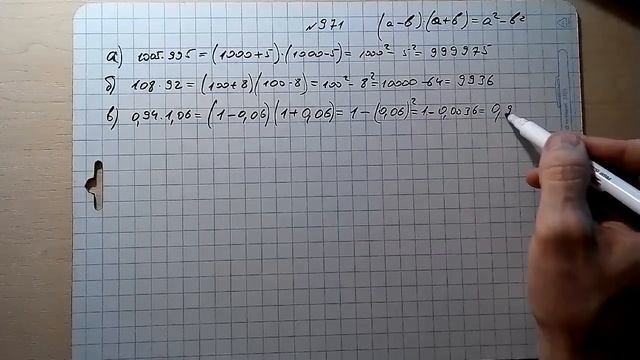 №971 (a-b)·(a+b)=a²-b²
а) 1005·995=(1000+5)·(1000-5)=1000²-5²=999975
б) 108·92=(100+8)(100-8)=100²-8²=10000-64=9936
в) 0,94·1,06=(1-0,06)(1+0,06)=1-(0,06)²=1-0,0036=0,9